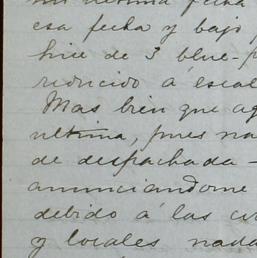 mi ultima fecha
esa fecha y bajo
hice de 3 blue-p
reducido á escal
Mas bien que ag
ultima, pues na
de despachada -
anunciandome
debido á las cir
y locales nada